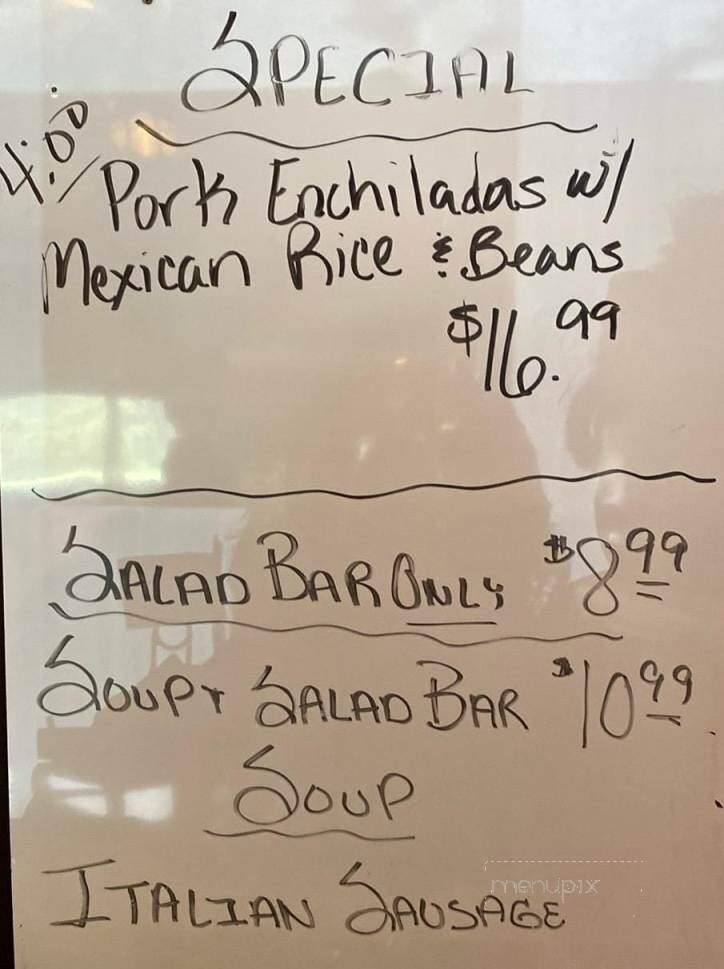 SPECIAL
4:00/
Pork Enchiladas w/
Mexican Rice & Beans
$16.99
SALAD BAR ONLY $8.99
SOUP + SALAD BAR $10.99
SOUP
ITALIAN SAUSAGE
menupix